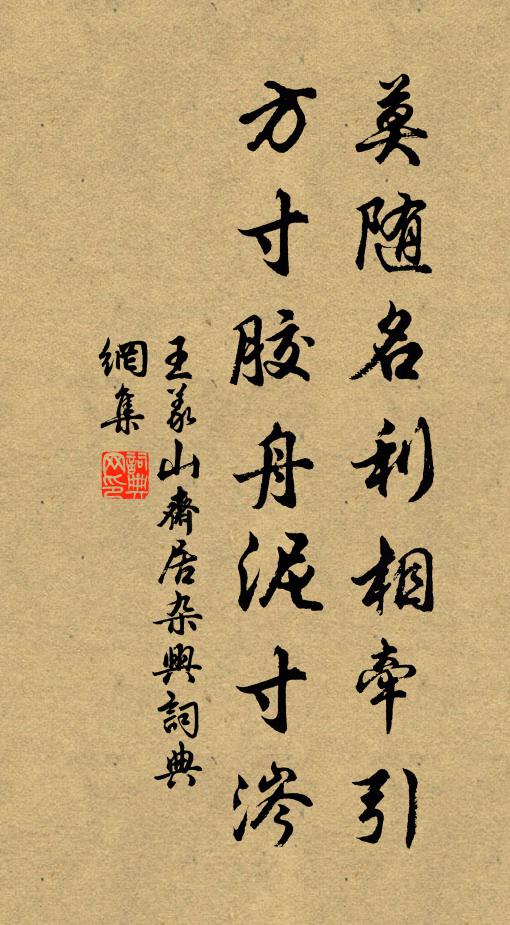 莫随名利相牵引
方寸胶舟泥寸涔
王义山斋居杂兴词典
网集
词典网印